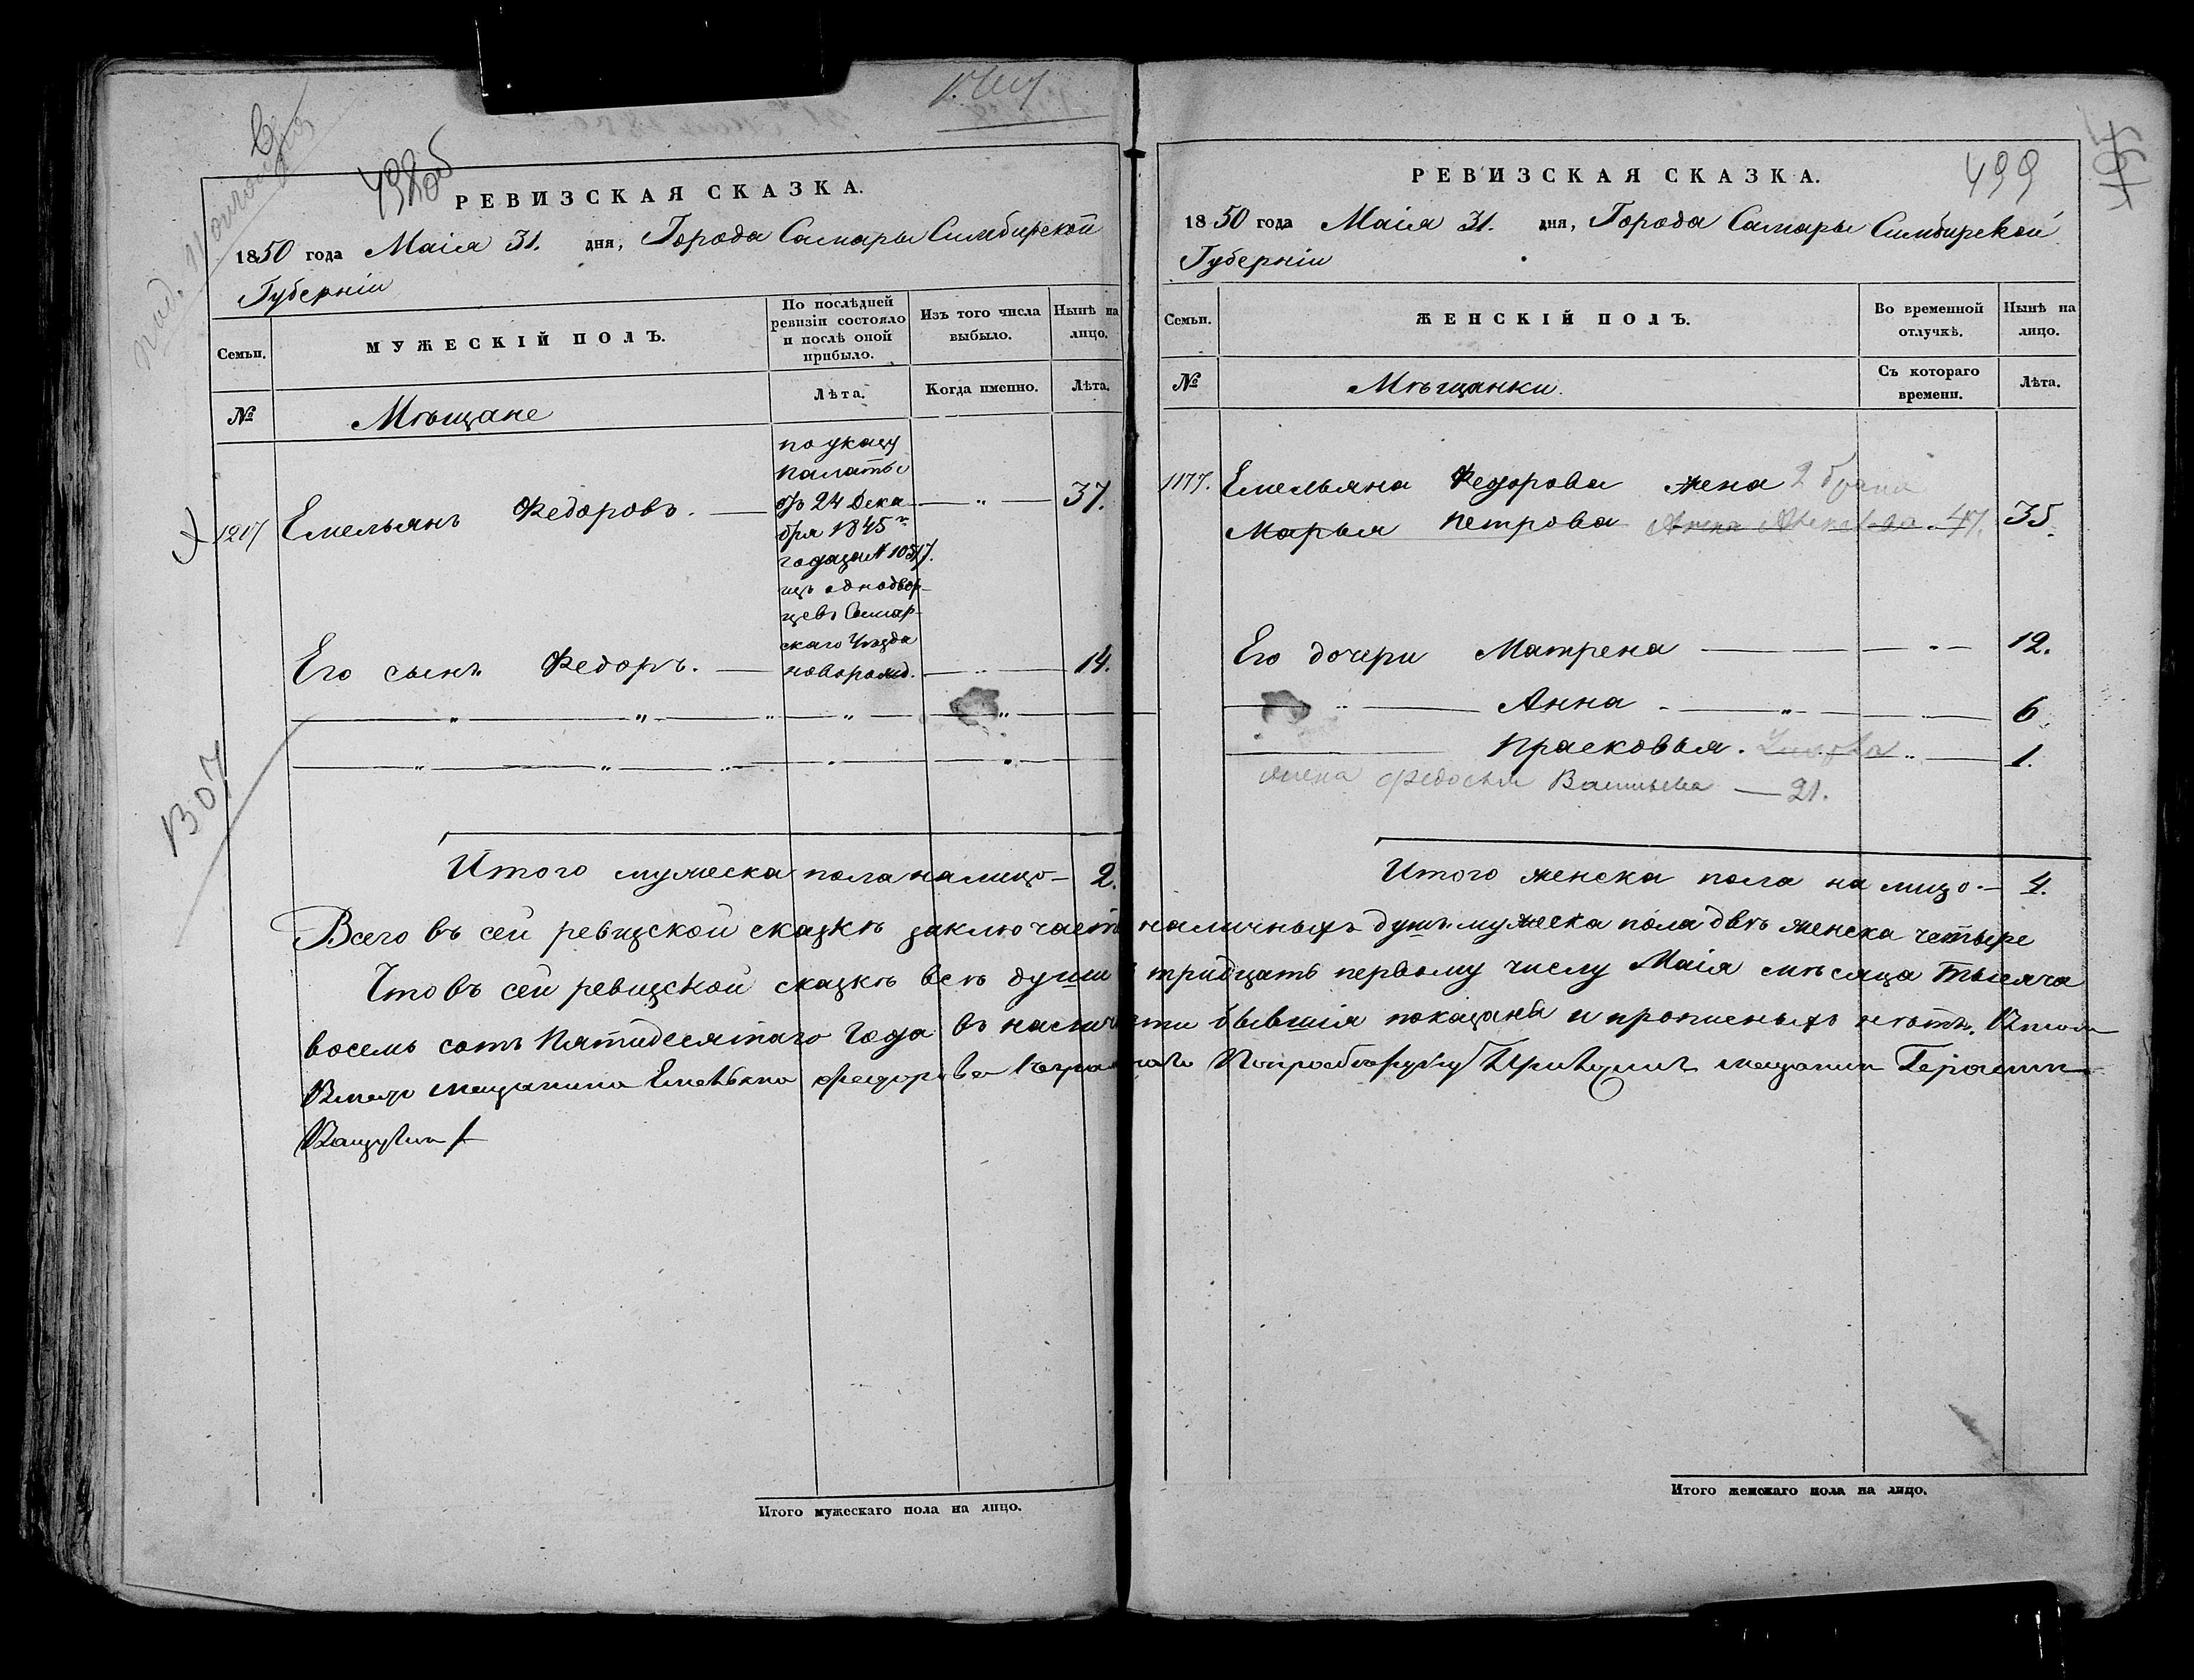 498 об
РЕВИЗСКАЯ СКАЗКА.
1850 года Маія 31. дня, Города Самары Симбирской
Губерніи
Семьи.
МУЖЕСКІЙ ПОЛЪ.
По послѣдней
ревизіи состояло
и послѣ оной
прибыло.
Изъ того числа
выбыло.
Нынѣ на
лицо.
№
Мѣщане
Лѣта.
Когда именно.
Лѣта.
1217
Емельянъ Федоровъ.
по указу
палаты
отъ 24 Дека
бря 1845го
года за N 10517.
изъ однодвор-
цевъ Самар-
скаго Уѣзда
37.
Его сынъ Федоръ.
новорожд.
14.
1307
Итого мужеска пола налицо 2.
499
РЕВИЗСКАЯ СКАЗКА.
1850 года Маія 31. дня, Города Самары Симбирской
Губерніи
Семьи.
ЖЕНСКІЙ ПОЛЪ.
Во временной
отлучкѣ.
Нынѣ на
лицо.
№
Мѣщанки.
Съ котораго
времени.
Лѣта.
1177.
Емельяна Федорова жена 2 брака
Марья Петрова Анна 47. 35.
Его дочери Матрена 12.
Анна 6.
Прасковья. 1.
жена Федосья Васильева — 21.
Итого женска пола на лицо — 4.
Всего въ сей ревизской сказкѣ заключаетъ наличныхъ душъ мужеска пола двѣ женска четыре
Что въ сей ревизской сказкѣ всѣ души тридцать первому числу Маія мѣсяца тысяча
восемь сотъ Пятидесятаго Года въ наличности бывшія показаны и прописныхъ нѣтъ.
Вместо мещанина Емельяна Федорова мещанин Герасим
Итого мужескаго пола на лицо.
Итого женскаго пола на лицо.